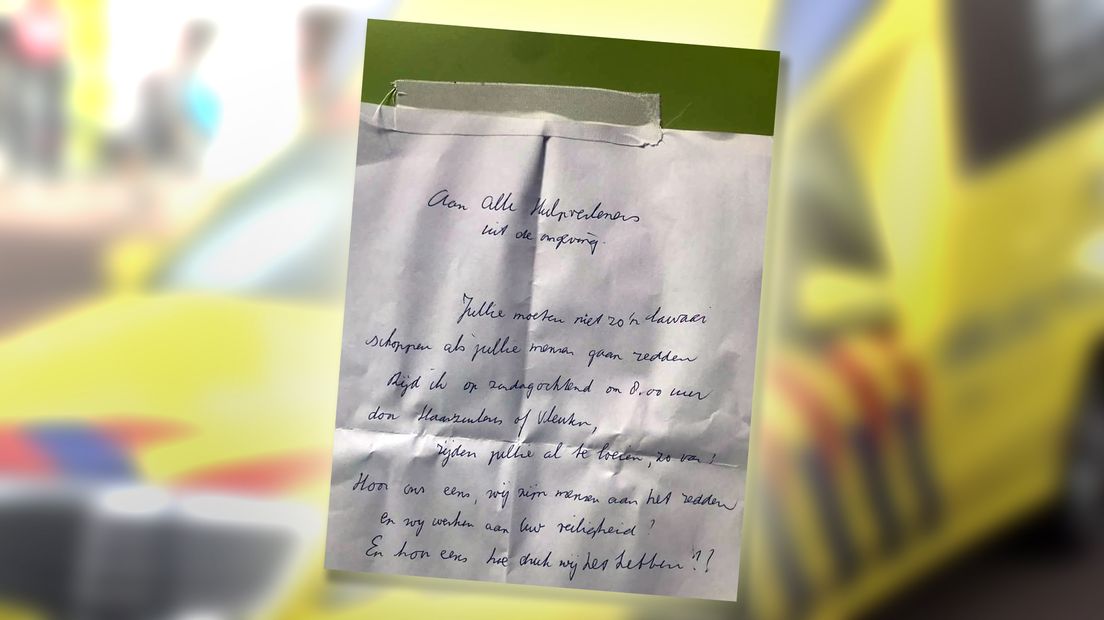 Aan Alle Hulpverleners
uit de omgeving.
Jullie moeten niet zo'n lawaai
schoppen als jullie mensen gaan redden
Rijd ik op zondagochtend om 8.00 uur
door Haarzuilens of Vleuten,
rijden jullie al te loeien, zo van!
Hoor ons eens, wij zijn mensen aan het redden
en wij werken aan uw veiligheid!
En hoor eens hoe druk wij het hebben!??